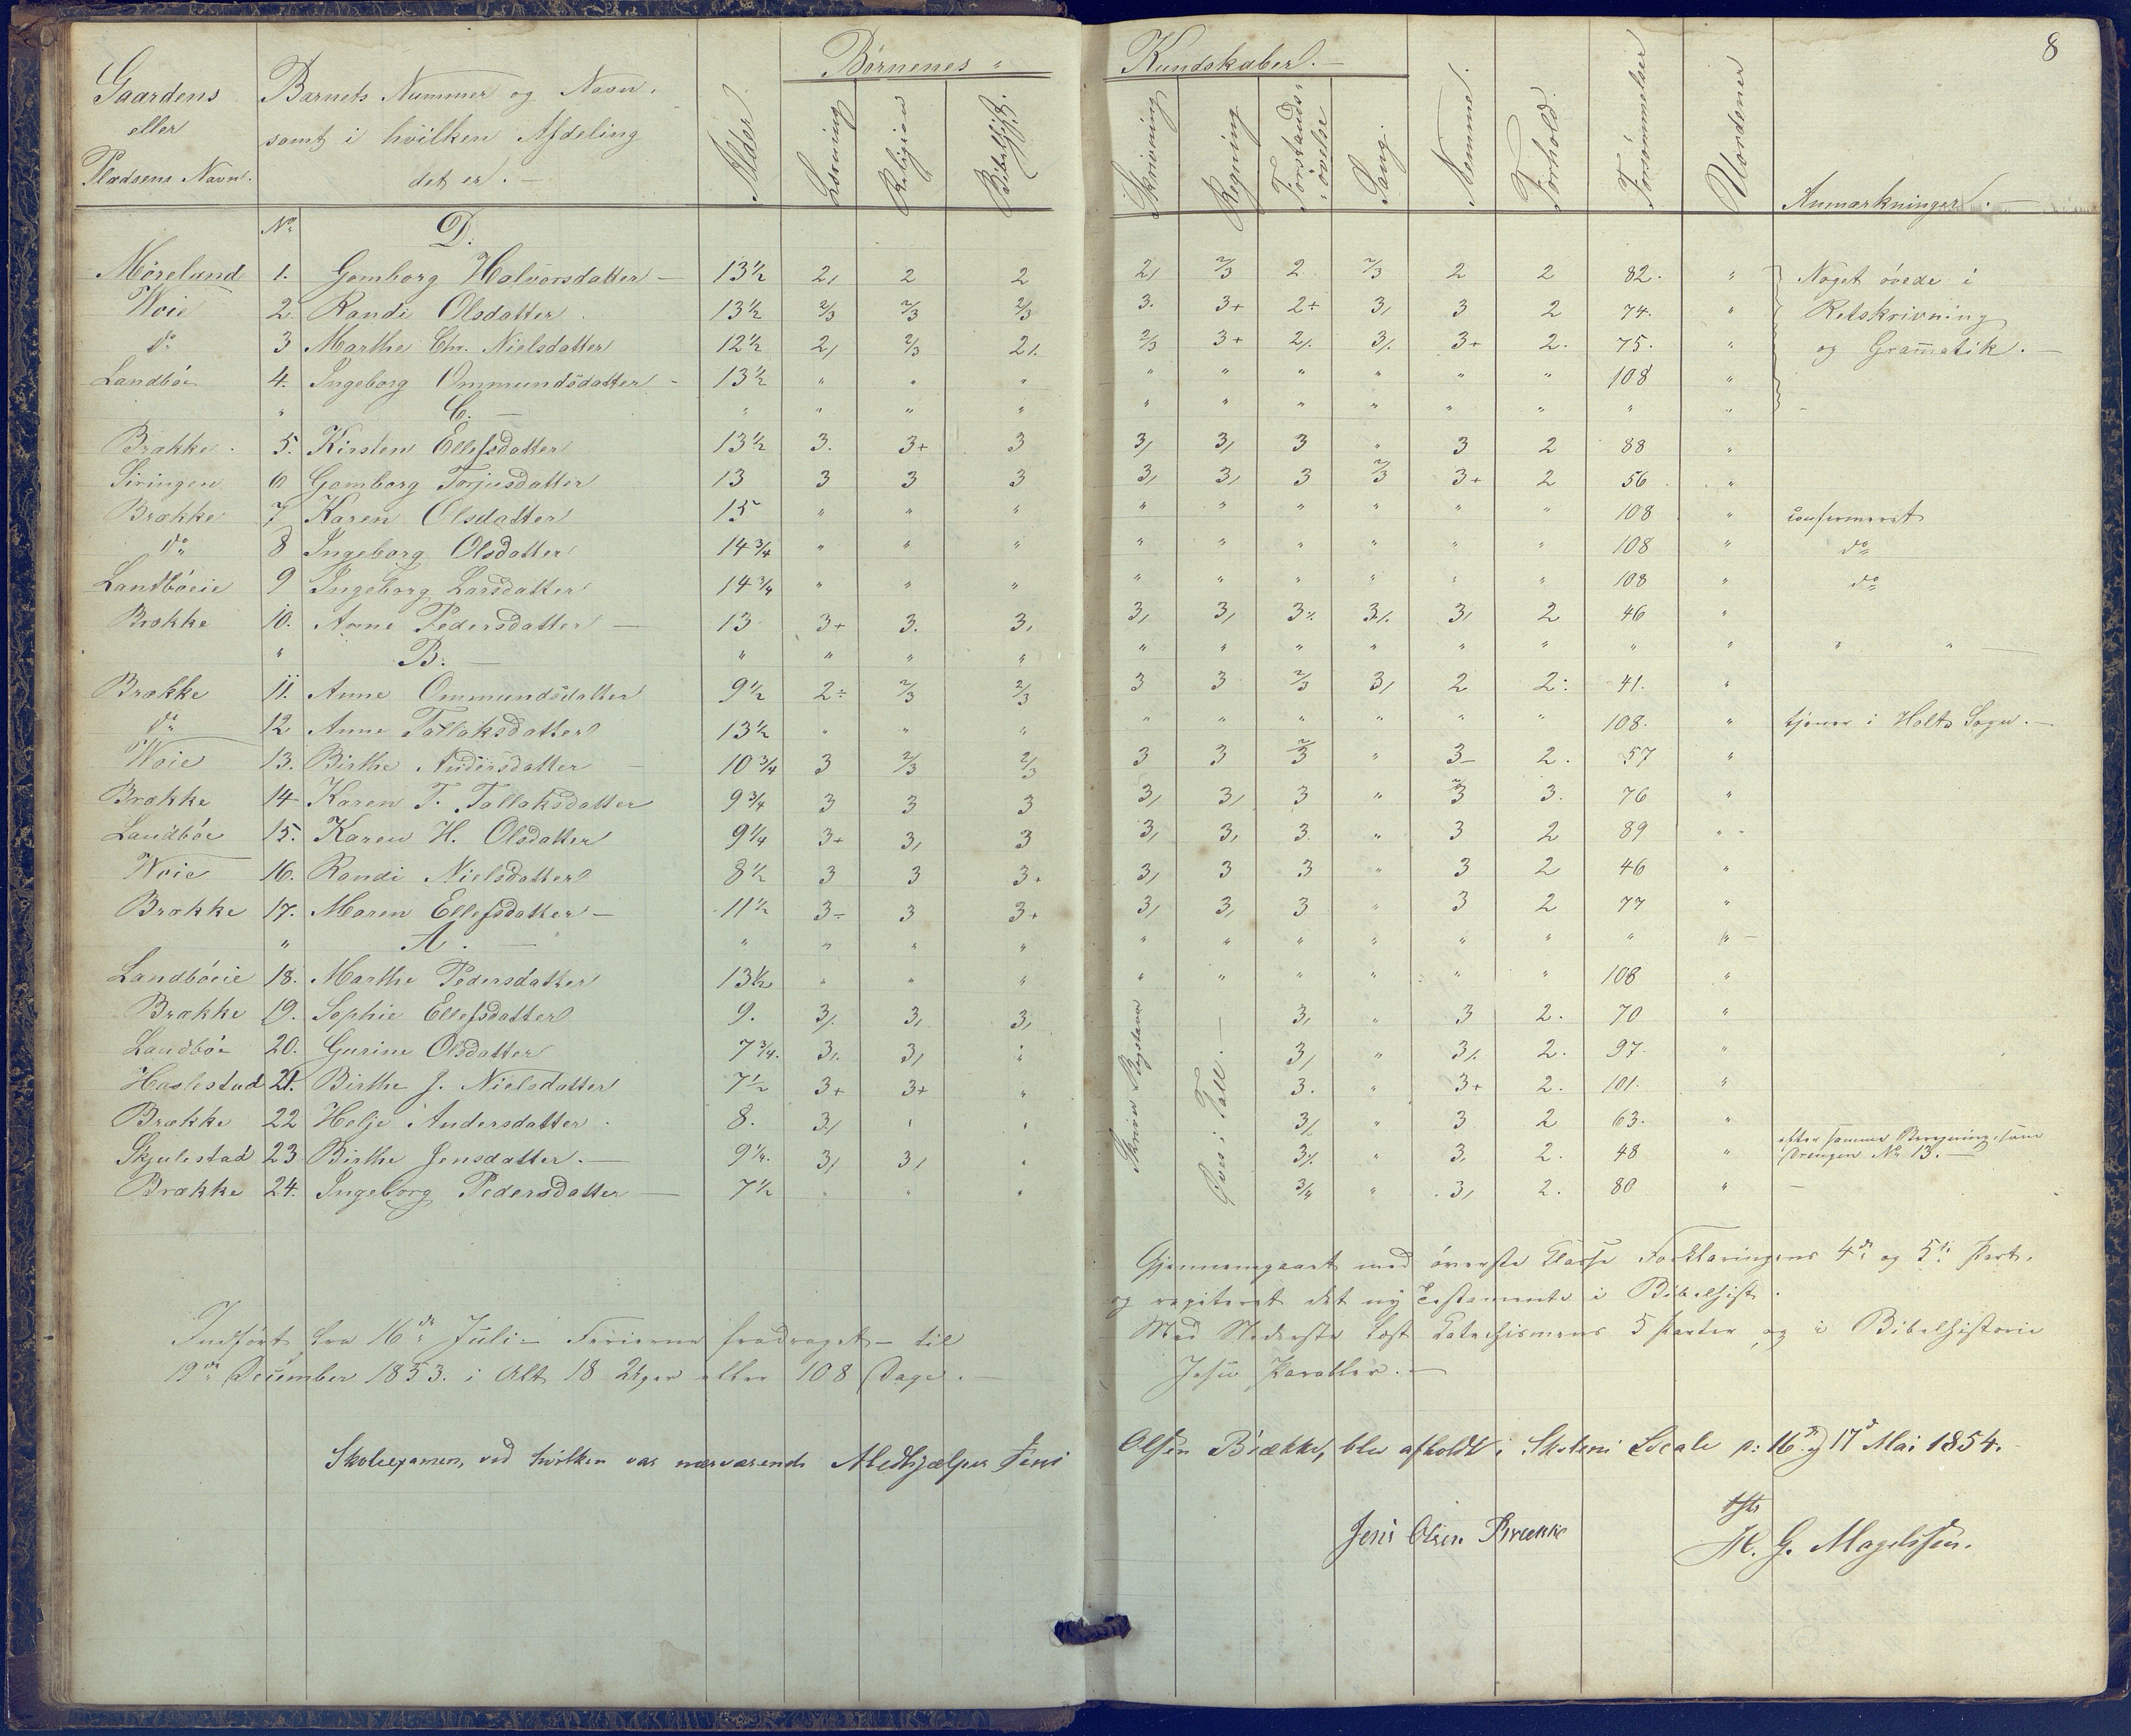 8
Børnenes " Kundskaber. —
Gaardens eller Pladsens Navn. | Barnets Nummer og Navn, samt i hvilken Afdeling det er. — | Alder | Læsning | Religion | Bibelhist. | Skrivning | Regning | Forstandsøvelse | Sang. | Nemme. | Forhold. | Forsømmelser | Uordener | Anmærkninger. —
No. D.
Møreland 1. Gomborg Halvorsdatter — 13½ 2, 2 2 2, 2/3 2 2/3 2 2 82. " Noget øvede i
Woie 2 Randi Olsdatter 13½ 2/3 2/3 2/3 3. 3+ 2÷ 3, 3 2 74. " Retskrivning
do 3 Marthe Chr. Nielsdatter 12½ 2, 2/3 2⁒ 2/3 3+ 2⁒ 3⁒ 3+ 2. 75. " og Gramatik. —
Landbøe 4. Ingeborg Ommundsdatter - 13½ " " " " " " " " " 108 "
" C. — " " " " " " " " " " " "
Brække. 5. Kirsten Ellefsdatter 13½ 3. 3+ 3 3, 3, 3 " 3 2 88 "
Siringen 6 Gomborg Torjusdatter 13 3 3 3 3, 3, 3 2/3 3+ 2 56 "
Brække 7 Karen Olsdatter 15 " " " " " " " " " 108 " confirmeret
do 8 Ingeborg Olsdatter 14¾ " " " " " " " " " 108 " do
Landbøeie 9 Ingeborg Larsdatter 14¾ " " " " " " " " " 108 " do
Brække 10. Anne Pedersdatter — 13 3+ 3. 3, 3, 3, 3⁒ 3⁒ 3, 2 46 "
" B. — " " " " " " " " " " " " " "
Brække 11. Anne Ommundsdatter 9½ 2÷ 2/3 2/3 3 3 2/3 3, 2 2: 41. "
do 12 Anne Tallaksdatter 13½ " " " " " " " " " 108. " tjener i Holts Sogn. —
Woie 13. Birthe Andersdatter 10¾ 3 2/3 2/3 3 3 2/3 " 3– 2. 57 "
Brække 14 Karen T. Tallaksdatter 9¾ 3 3 3 3, 3, 3 " 2/3 3. 76 "
Landbøe 15. Karen H. Olsdatter 9¼ 3+ 3, 3 3, 3, 3 " 3 2 89 "
Woie 16. Randi Nielsdatter 8½ 3 3 3+ 3, 3 3 " 3 2 46 "
Brække 17. Maren Ellefsdatter — 11½ 3÷ 3 3+ 3, 3, 3 " 3 2 77 "
" A. — " " " " " " " " " " " "
Landbøeie 18. Marthe Pedersdatter 13½ " " " " " " " " " 108 "
Brække 19. Sophie Ellefsdatter 9. 3⁒ 3, 3, 3, " 3 2. 70 "
Landbøe 20. Gurine Olsdatter 7¾. 3⁒ 3, " 3, " 3⁒ 2. 97. "
Haslestad 21. Birthe J. Nielsdatter 7½ 3+ 3+ " 3. " 3+ 2. 101. "
Brække 22 Helje Andersdatter. 8. 3, " " 3⁒ " 3 2 63. "
Skjulestad 23 Birthe Jensdatter. — 9¼. 3, 3, " 3⁒ " 3, 2. 48 " efter samme Beregning som Drengen No 13. —
Brække 24. Ingeborg Pedersdatter — 7½ " " " 3/4 " 3, 2. 80 " —
Skriver Bogstaver
Øves i Tall. —
Indført fra 16de Juli – Ferierne fradraget – til
19de December 1853. i Alt 18 Uger eller 108 Dage. —
Gjennemgaaet med øverste Classe Forklaringens 4de og 5te Part,
og repiteret det ny Testamente i Bibelhist.
Med Nederste læst Katechismens 5 Parter og i Bibelhistorie
Jesu Parabler. —
Skoleexamen, ved hvilken var nærværende Medhjælper Jens Olsen Brække, blev afholdt i Skolens Locale d: 16de og 17de Mai 1854.
Jens Olsen Brække
H. G. Magelssen.